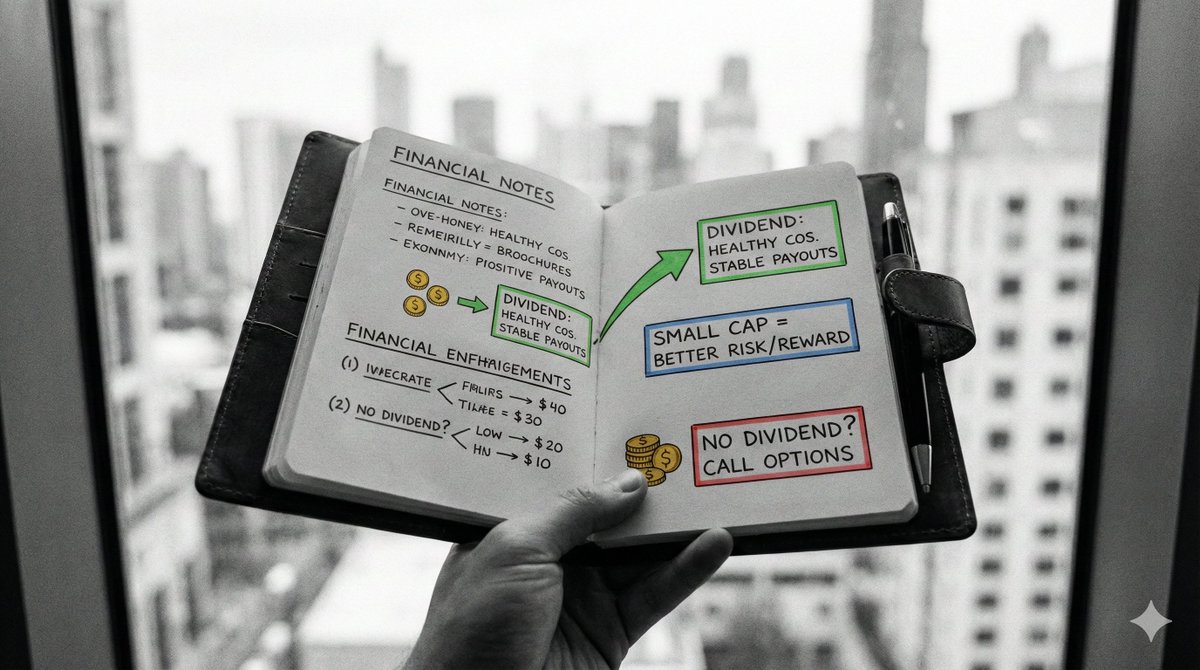 FINANCIAL NOTES
FINANCIAL NOTES:
- OVE-HONEY: HEALTHY COS.
- REMEIRILLY = BROOCHURES
- EXONNMY: PIOSITIVE PAYOUTS
DIVIDEND:
HEALTHY COS.
STABLE PAYOUTS
FINANCIAL
(1)
→ $40
= $30
(2) NO DIVIDEND?
LOW → $20
→ $10
DIVIDEND:
HEALTHY COS.
STABLE PAYOUTS
SMALL CAP =
BETTER RISK/REWARD
NO DIVIDEND?
CALL OPTIONS